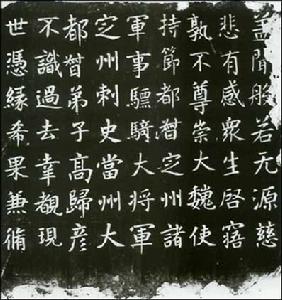 盖聞般若无源慈
悲有感衆生啓寤
孰不尊崇大魏使
持節都督定州諸
軍事驃騎大將軍
定州刺史當州大
都督弟子高歸彦
不識過去幸覩現
世憑緣希果兼脩